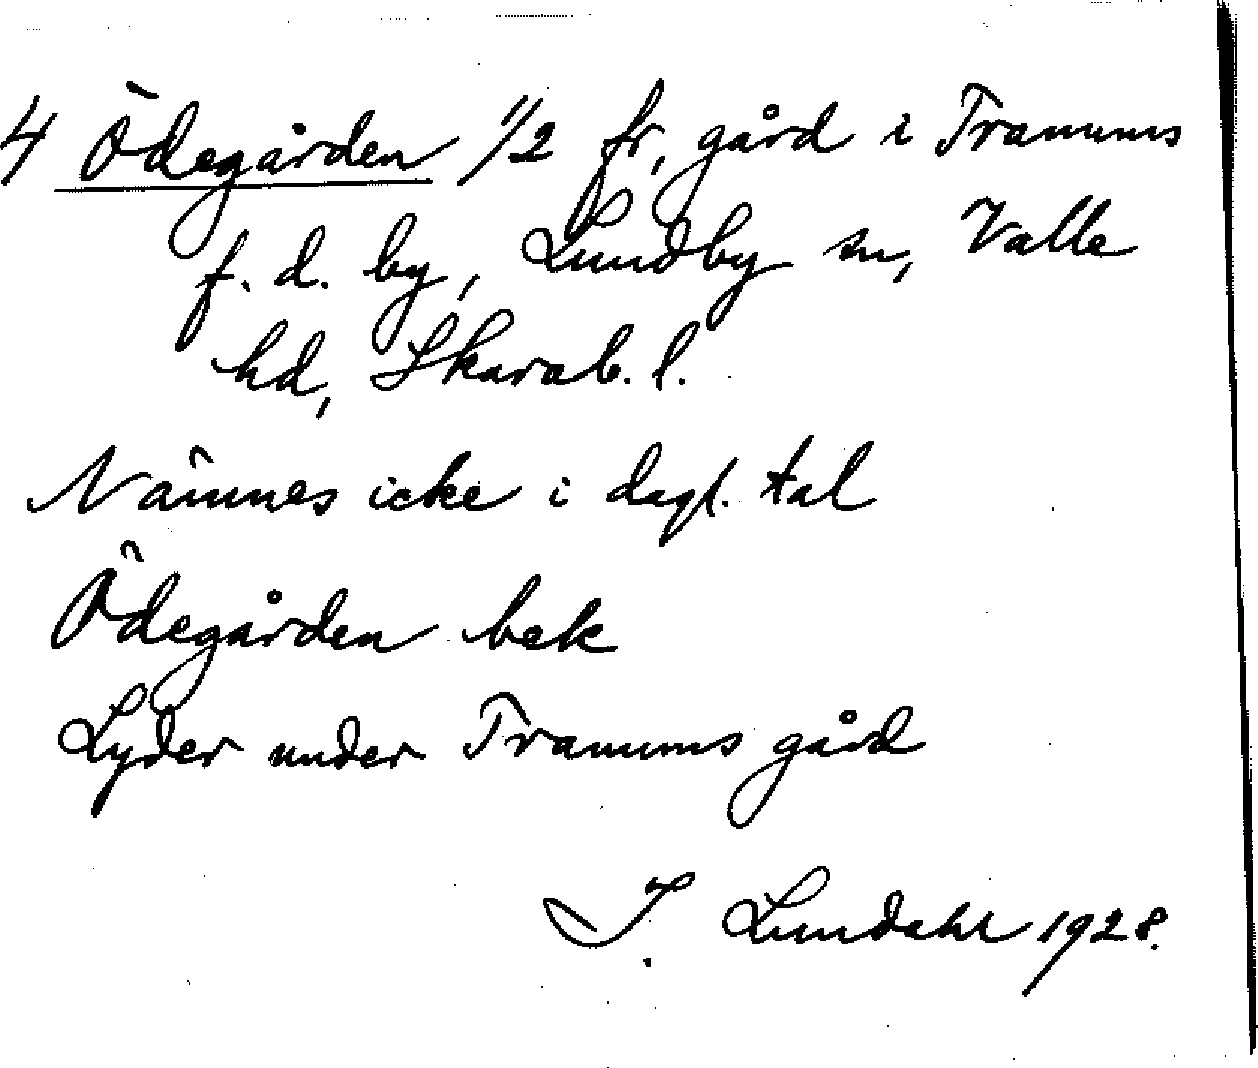 4 Ödegården 1/2 fr, gård i Tranums
f. d. by, Lundby sn, Valle
hd, Skarab. l.
Nämnes icke i dagl. tal
Ödegården bek
Lyder under Tranums gård
I. Lundahl 1928.